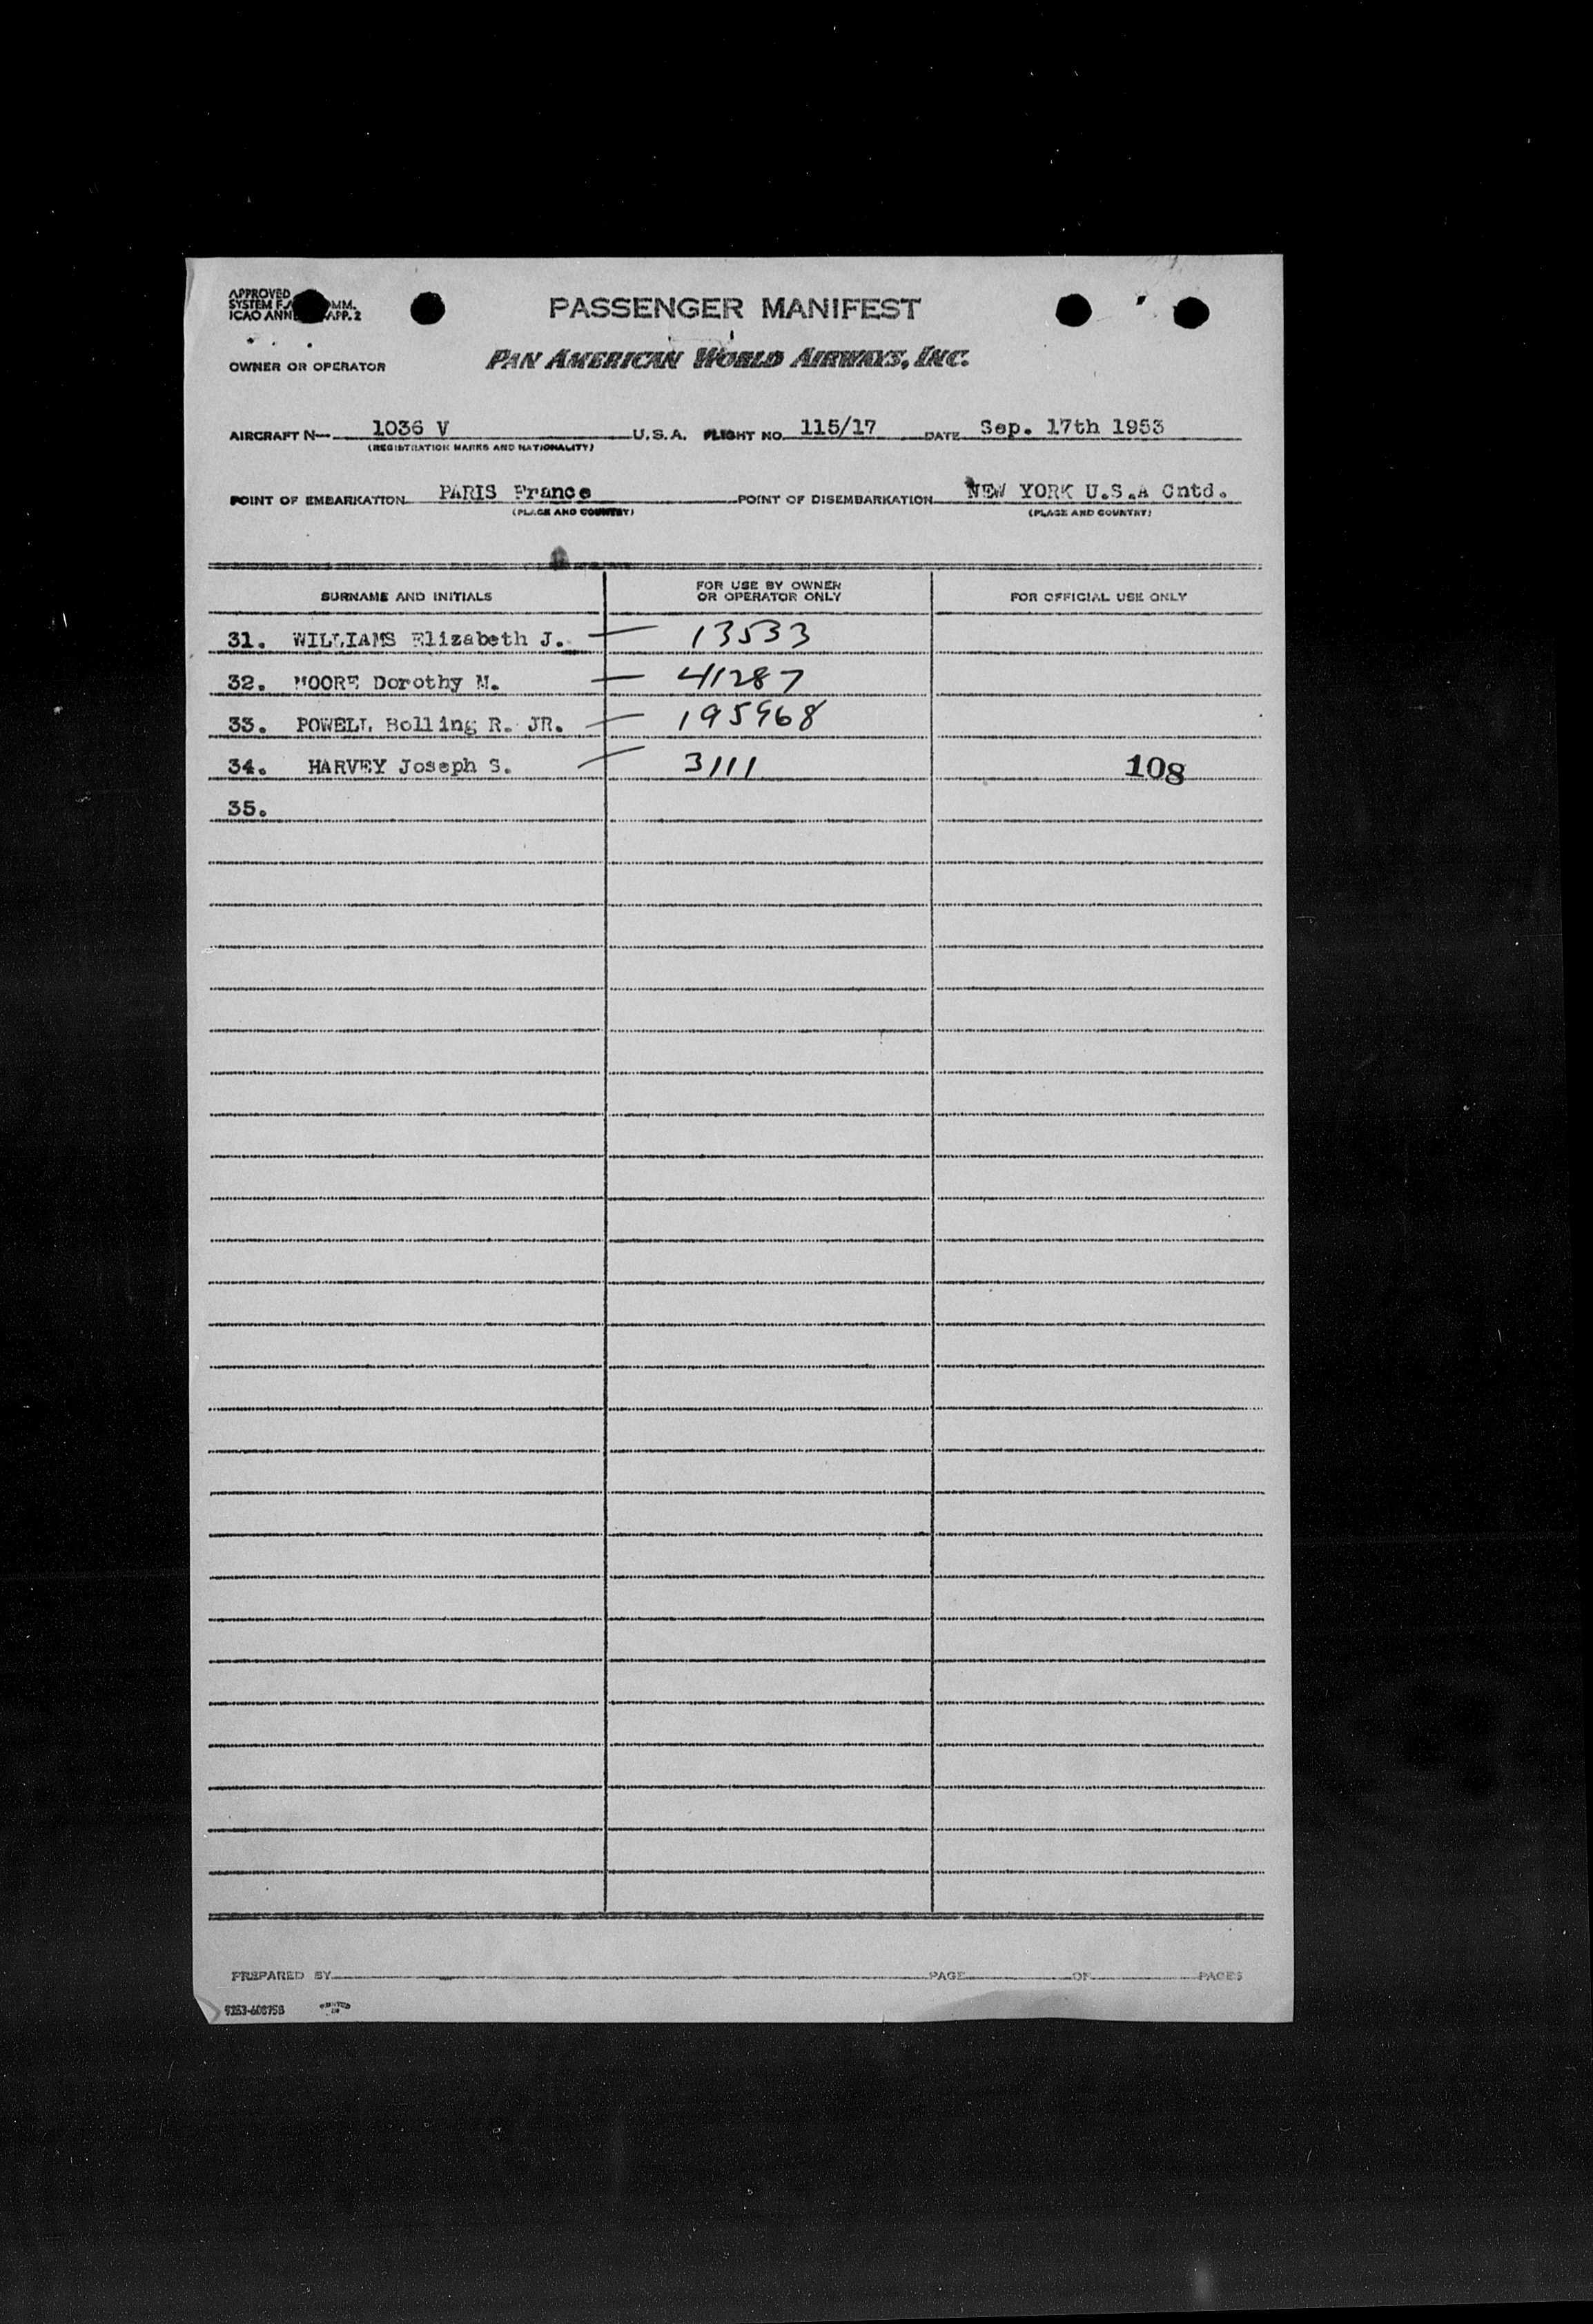 APPROVED
SYSTEM F. MM.
ICAO ANNE APP. 2
PASSENGER MANIFEST
OWNER OR OPERATOR PAN AMERICAN WORLD AIRWAYS, INC.
AIRCRAFT N— 1036 V U.S.A. FLIGHT NO. 115/17 DATE Sep. 17th 1953
(REGISTRATION MARKS AND NATIONALITY)
POINT OF EMBARKATION PARIS France POINT OF DISEMBARKATION NEW YORK U.S.A Cntd.
(PLACE AND COUNTRY) (PLACE AND COUNTRY)
SURNAME AND INITIALS FOR USE BY OWNER OR OPERATOR ONLY FOR OFFICIAL USE ONLY
31. WILLIAMS Elizabeth J. — 13533
32. MOORE Dorothy M. — 41287
33. POWELL Bolling R. JR. — 195968
34. HARVEY Joseph S. — 3111 108
35.
PREPARED BY PAGE OF PAGES